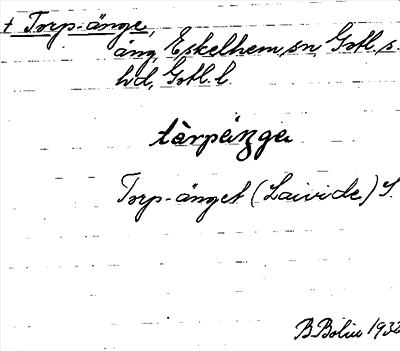 + Torp-änge,
äng, Eskelhem, sn, Gotl. s.
hd, Gotl. l.
tàrpäŋge
Torp-änget (Laivide) S.
B. Bolin 1932